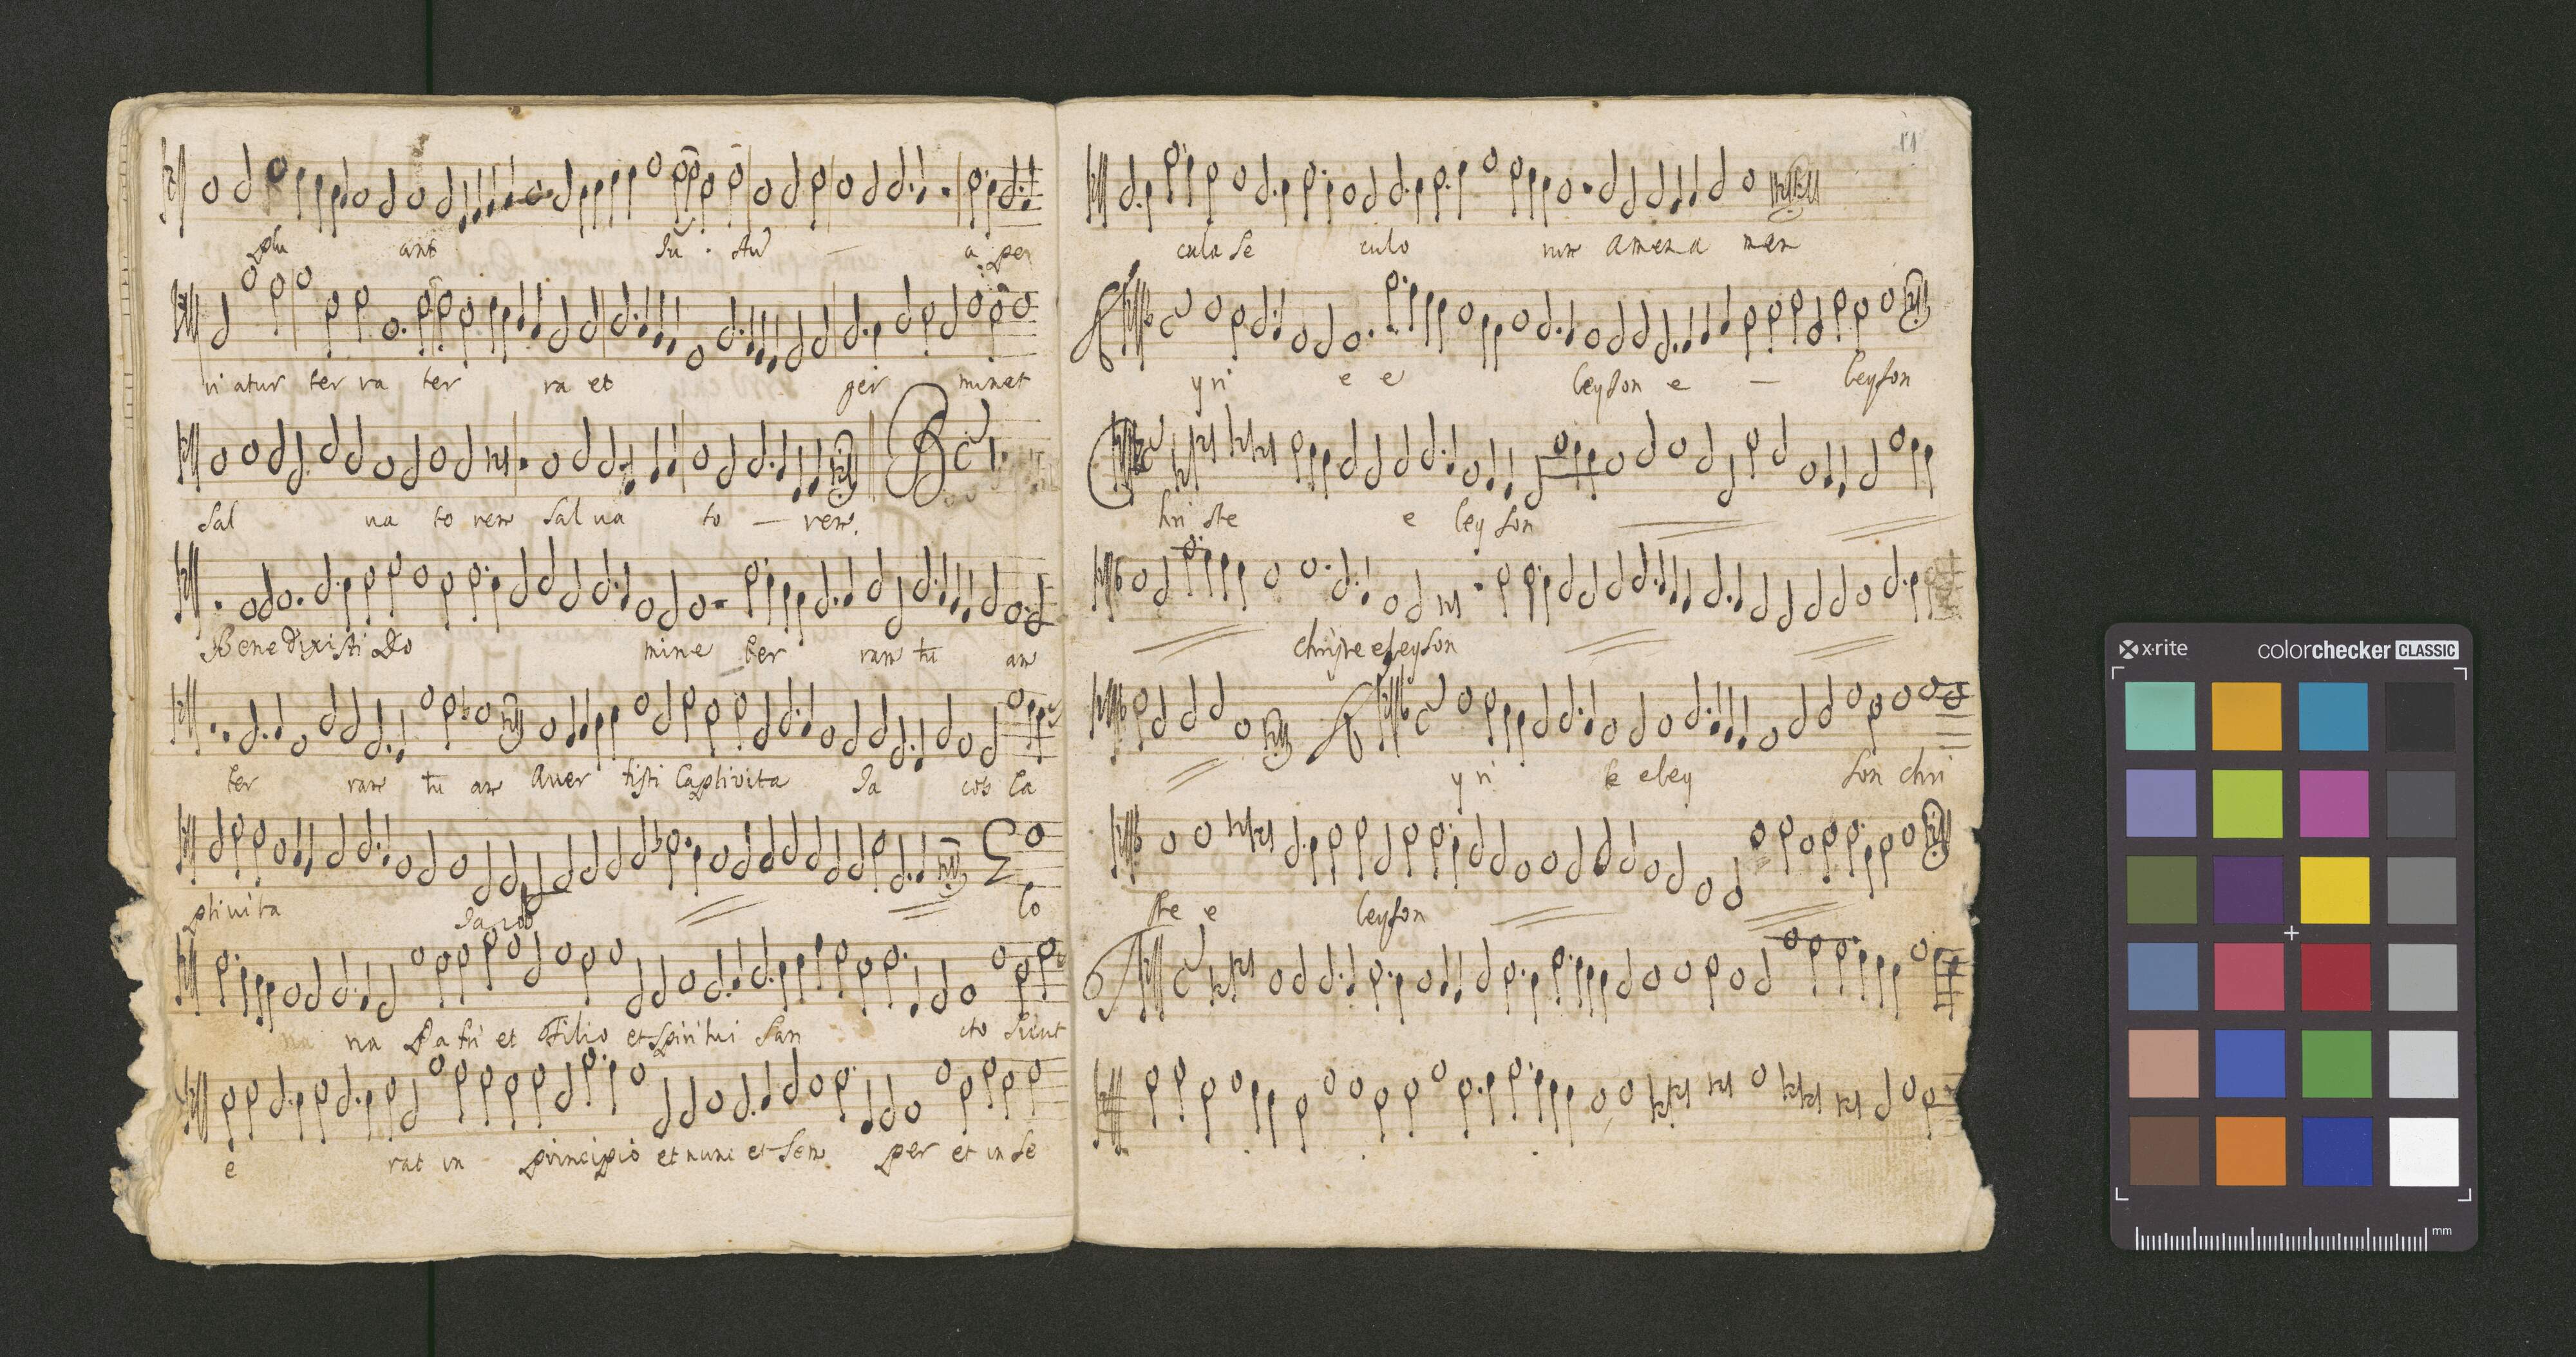 plu ant Iu . stu — a per
ri atur ter ra ter ra et ger minet
Sal ua to rem Sal ua to — rem.
B
Bene dixisti Do mine ter ram tu am
ter ram tu am Auer tisti Captivita Ia cob Ca
ptiuita Iacob Co
na Patri et Filio et Spiritui San cto Sicut
e rat in principio et nunc et Sem per et in Se
11
cula Se culo rum Amen a men
K yri e e leyson e — leyson
C hri ste e ley son
christe eleyson
K yri e eley son chri
ste e leyson
x-rite colorchecker CLASSIC
mm